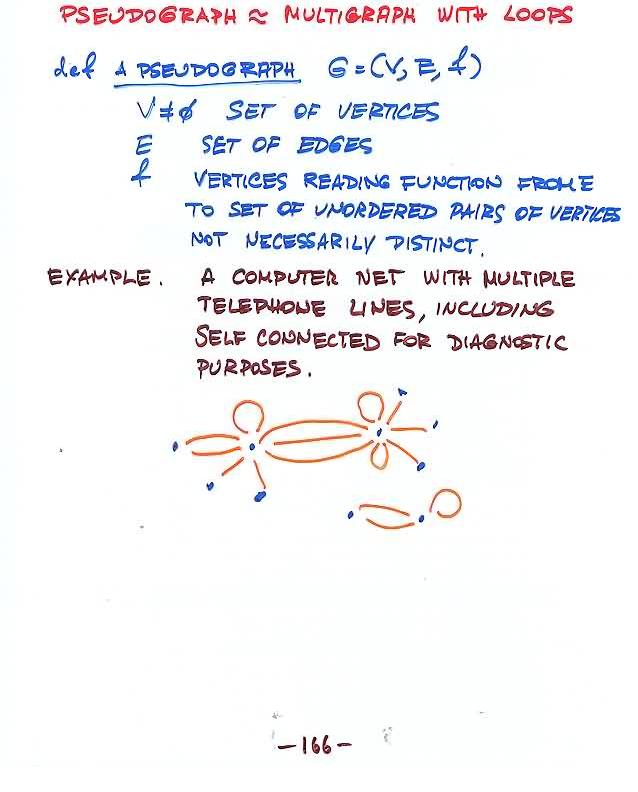 PSEUDOGRAPH ≈ MULTIGRAPH WITH LOOPS
def A PSEUDOGRAPH G=(V, E, f)
V≠∅ SET OF VERTICES
E SET OF EDGES
f VERTICES READING FUNCTION FROM E
TO SET OF UNORDERED PAIRS OF VERTICES
NOT NECESSARILY DISTINCT.
EXAMPLE. A COMPUTER NET WITH MULTIPLE
TELEPHONE LINES, INCLUDING
SELF CONNECTED FOR DIAGNOSTIC
PURPOSES.
-166-